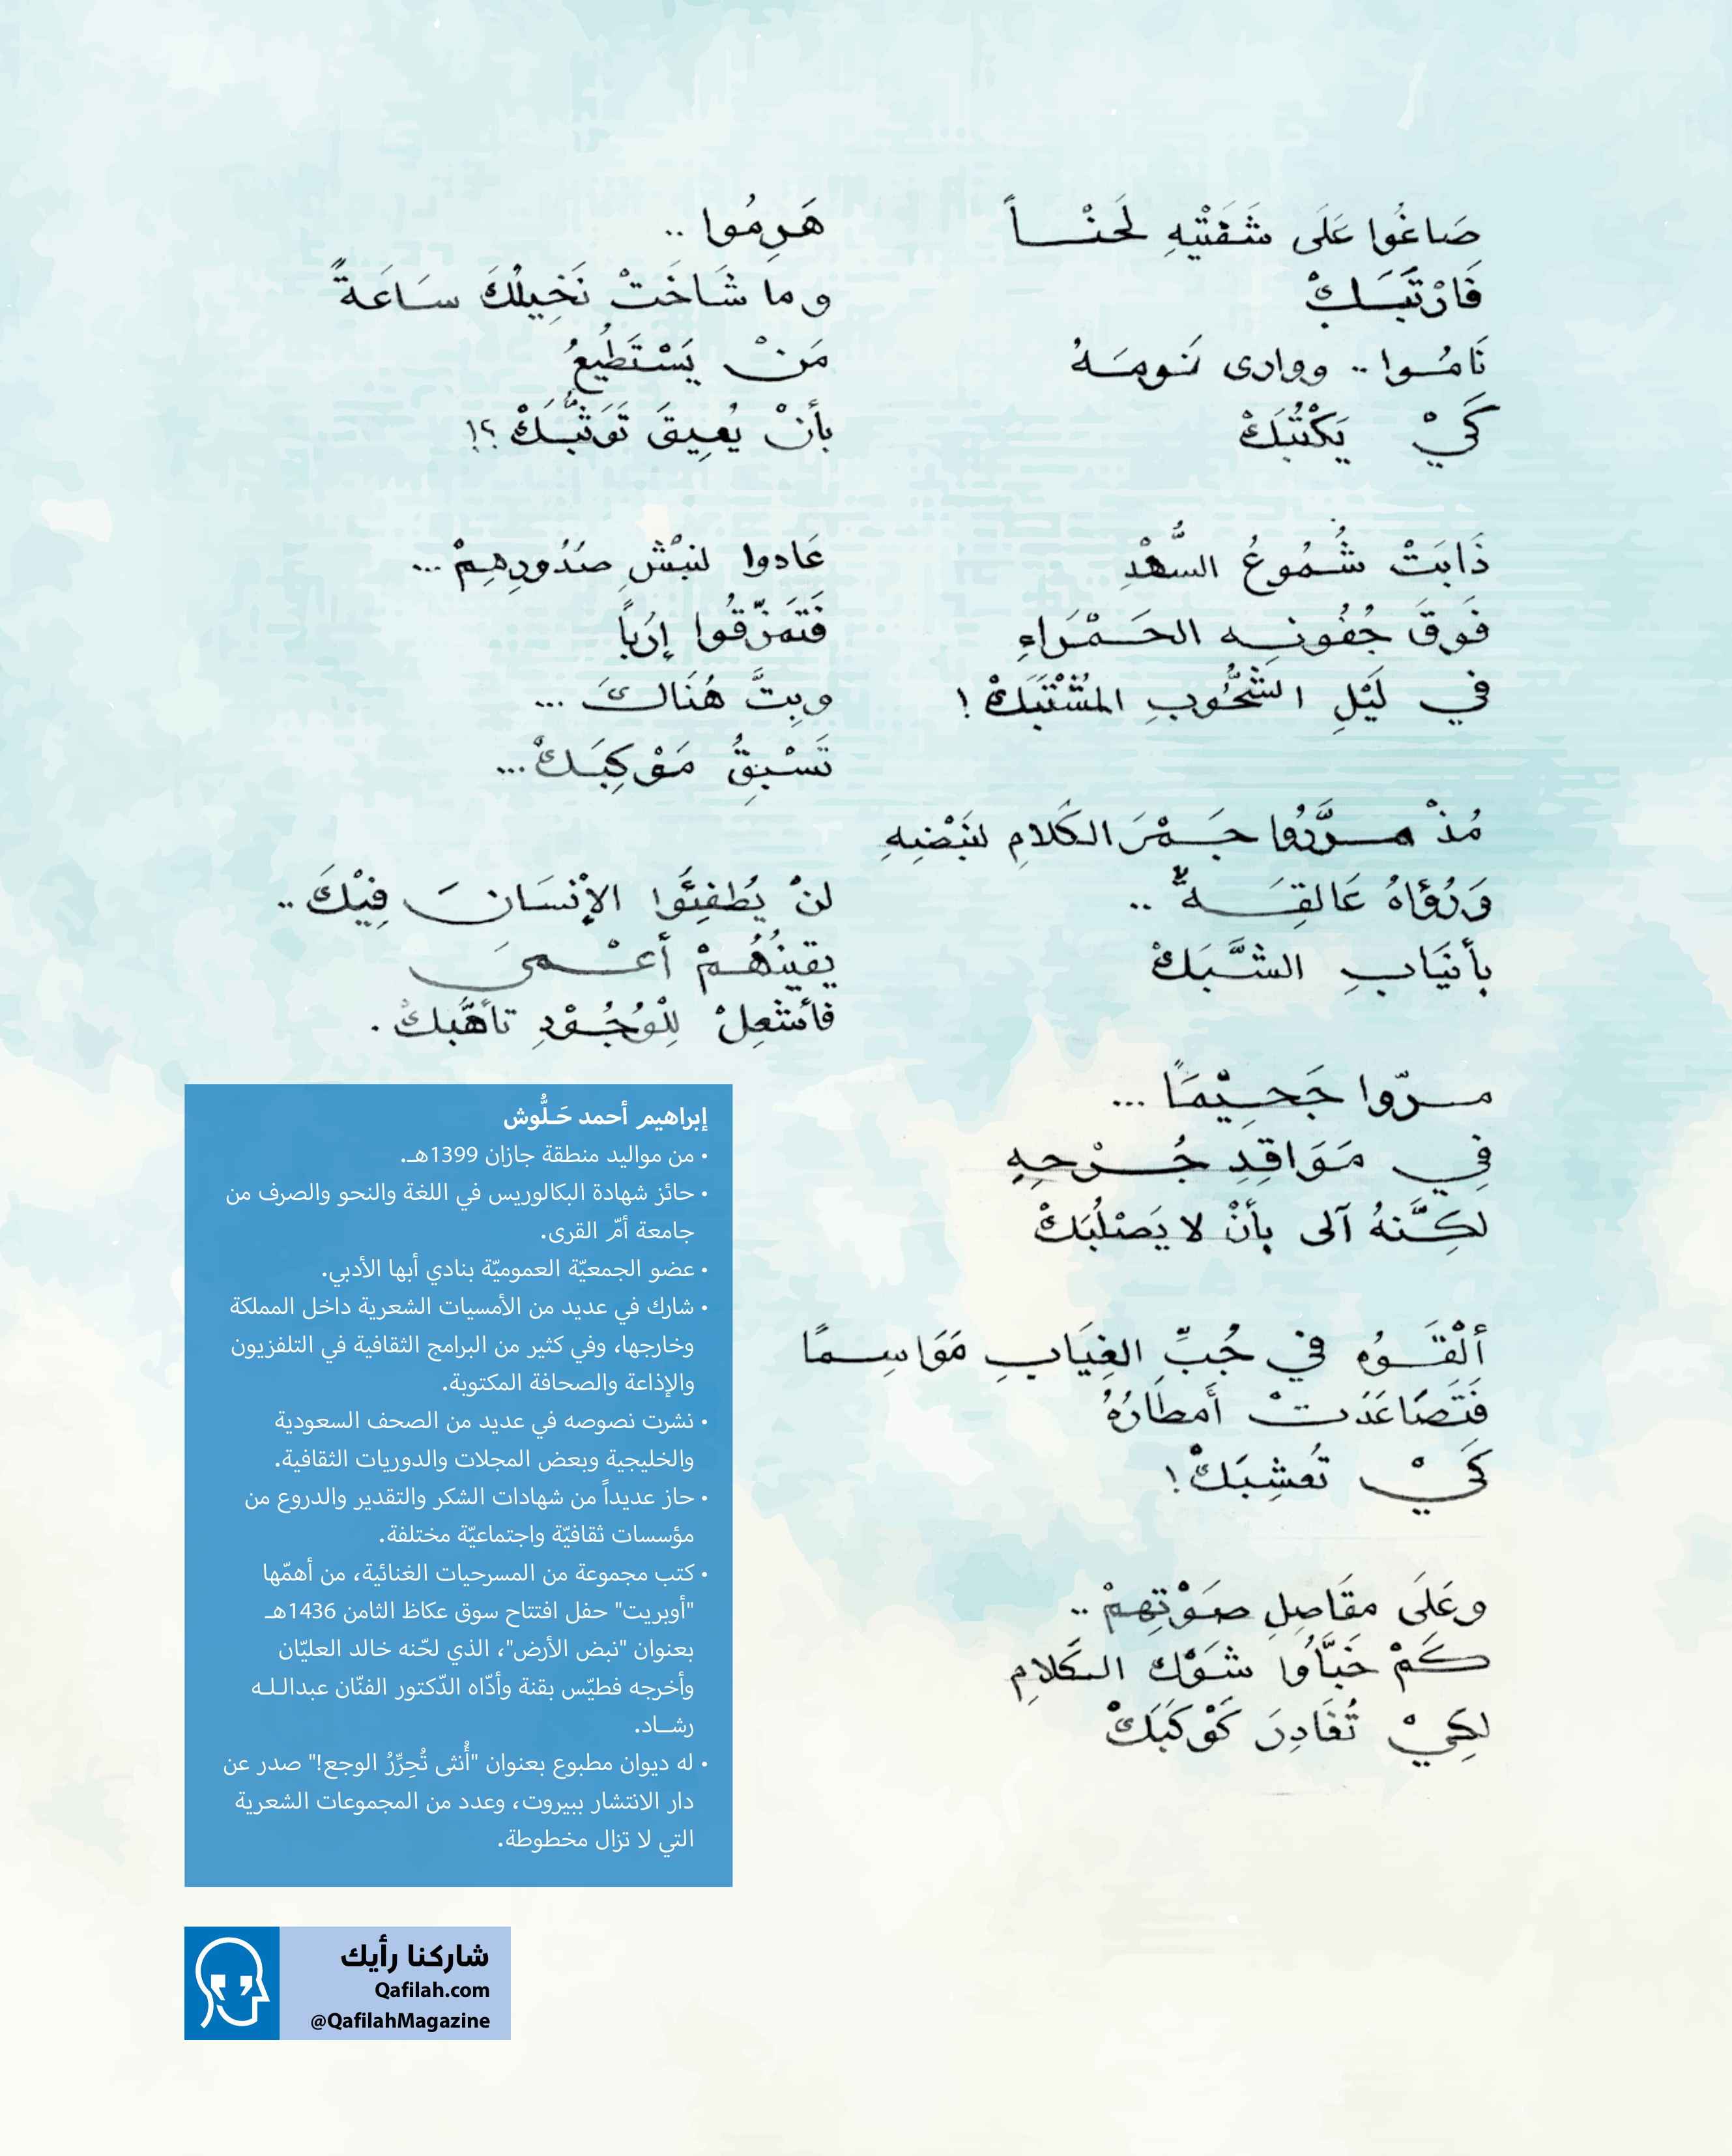 صَاغُوا عَلَى شَفَتَيْهِ لَحْنـــاً
فَارْتَبَـكْ
نَامُـوا .. ووارى نَـومَـهُ
كَيْ يَكْتُبَكْ
ذَابَتْ شُمُوعُ السُّهْدِ
فَوقَ جُفُونِـه الحَـمْرَاءِ
في لَيْلِ الشُّحُوبِ المُشْتَبَكْ !
مُذْ مـرَّرُوا جَـمْرَ الكَلامِ لنَبْضِهِ
وَرُؤَاهُ عَالقَـةٌ ..
بأنيَابِ الشَّبَكْ
مـرّوا جَحِيْمَاً ...
فِي مَوَاقِدِ جُـرْحِهِ
لكِنَّهُ آلى بأنْ لا يَصْلُبَكْ
ألْقَـوْهُ في جُبِّ الغِيَابِ مَوَاسِـمًا
فَتَصَاعَدَتْ أَمطَارُهُ
كَيْ تُعشِبَكْ !
وعَلَى مقَاصِلِ صَوْتِهِمْ ..
كَمْ خَبَّأُوا شَوْكَ الكَلامِ
لكِيْ تُغَادِرَ كَوْكَبَكْ
هَرِمُوا ..
وما شَاخَتْ نَخِيلُكَ سَاعَةً
مَنْ يَسْتَطِيعُ
بأنْ يُعِيقَ تَوَثُّبَـكْ ؟!
عَادوا لنبْشِ صُدُورِهِمْ ...
فَتَمَزّقُوا إرَباً
وبِتَّ هُنَالكَ ...
تَسْبِقُ مَوْكِبَـكْ ...
لنْ يُطفِئُوا الإنْسَانَ فِيْكَ ..
يقينُهُمْ أعْـمىَ
فأشْعِلْ لِلْوُجُـوْدِ تأهُّبكْ .
إبراهيم أحمد حَـلُّوش
• من مواليد منطقة جازان 1399هـ.
• حائز شهادة البكالوريس في اللغة والنحو والصرف من
جامعة أمّ القرى.
• عضو الجمعيّة العموميّة بنادي أبها الأدبي.
• شارك في عديد من الأمسيات الشعرية داخل المملكة
وخارجها، وفي كثير من البرامج الثقافية في التلفزيون
والإذاعة والصحافة المكتوبة.
• نشرت نصوصه في عديد من الصحف السعودية
والخليجية وبعض المجلات والدوريات الثقافية.
• حاز عديداً من شهادات الشكر والتقدير والدروع من
مؤسسات ثقافيّة واجتماعيّة مختلفة.
• كتب مجموعة من المسرحيات الغنائية، من أهمّها
"أوبريت" حفل افتتاح سوق عكاظ الثامن 1436هـ
بعنوان "نبض الأرض"، الذي لحّنه خالد العليّان
وأخرجه فطيّس بقنة وأدّاه الدّكتور الفنّان عبدالـلـه
رشــاد.
• له ديوان مطبوع بعنوان "أُنثى تُحرِّرُ الوجع!" صدر عن
دار الانتشار ببيروت، وعدد من المجموعات الشعرية
التي لا تزال مخطوطة.
شاركنا رأيك
Qafilah.com
@QafilahMagazine